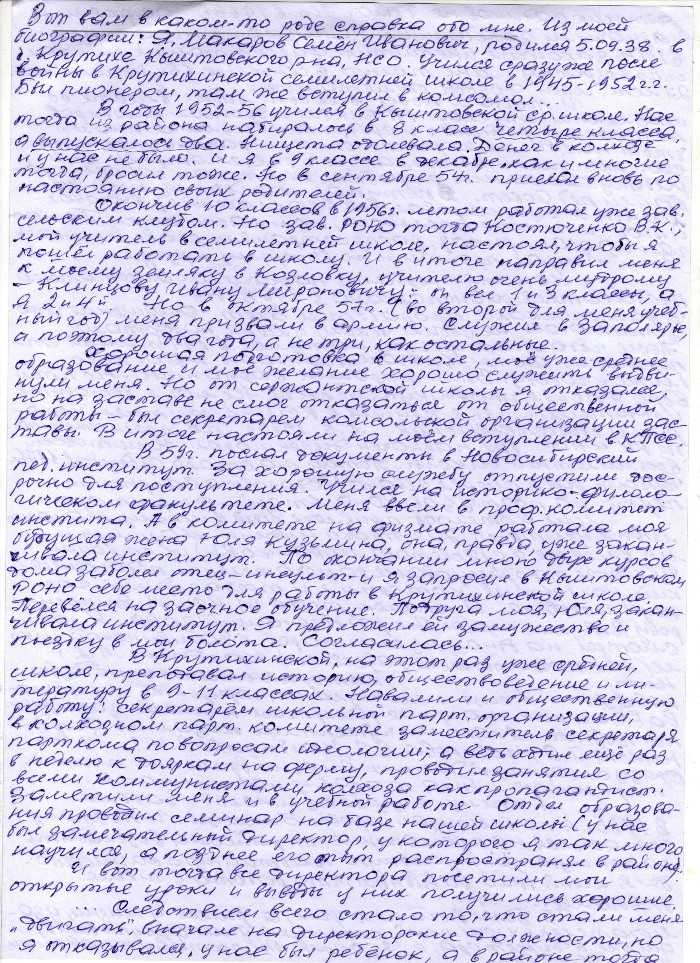 Вот вам в каком-то роде справка обо мне. Из моей
биографии: Я, Макаров Семён Иванович, родился 5.09.38. в
с. Крутихе Кыштовского р-на, НСО. Учился сразу же после
войны в Крутихинской семилетней школе в 1945-1952 г.г.
Был пионером, там же вступил в комсомол...
В годы 1952-56 учился в Кыштовской ср. школе. Нас
тогда из района набиралось в 8 класс четыре класса,
а выпускалось два. Нищета одолевала. Денег в колхозе
и у нас не было. и я в 9 классе в декабре, как и многие
тогда, бросил тоже. Но в сентябре 54г. приехал вновь по
настоянию своих родителей.
Окончив 10 классов в 1956г. летом работал уже зав.
сельским клубом. Но зав. РОНО тогда Костюченко В.К.,
мой учитель в семилетней школе, настоял, чтобы я
пошёл работать в школу. И в итоге направил меня
к моему земляку в Козловку, учителю очень мудрому
- Клинцову Ивану Мироновичу: он вел 1 и 3 классы, а
я 2 и 4й Но в октябре 57г. (во второй для меня учеб-
ный год) меня призвали в армию. Служил в Заполярье,
а поэтому два года, а не три, как остальные.
Хорошая подготовка в школе, моё уже среднее
образование и моё желание хорошо служить выдви-
нули меня. Но от сержантской школы я отказался,
но на заставе не смог отказаться от общественной
работы - был секретарем комсольской организации зас-
тавы. В итоге настояли на моём вступлении в КПСС.
В 59г. послал документы в Новосибирский
пед. институт. За хорошую службу отпустили дос-
рочно для поступления. Учился на историко-филоло-
гическом факультете. Меня ввели в проф. комитет
инстита. А в комитете на физмате работала моя
будущая жена Юля Кузьмина, она, правда, уже закан-
чивала институт. По окончании мною двух курсов
дома заболел отец - инсульт - и я запросил в Кыштовском
РОНО себе место для работы в Крутихинской школе.
Перевёлся на заочное обучение. Подруга моя, Юля, закан-
чивала институт. Я предложил ей замужество и
поездку в мои болота. Согласилась...
В Крутихинской, на этот раз уже средней,
школе, преподавал историю, обществоведение и ли-
тературу в 9-11 классах. Навалили и общественную
работу: секретарём школьной парт. организации,
в колхозном парт. комитете заместитель секретаря
парткома по вопросам идеологии, а ведь ходил ещё раз
в неделю к дояркам на ферму, проводил занятия со
всеми коммунистами колхоза как пропагандист.
Заметили меня и в учебной работе Отдел образова-
ния проводил семинар на базе нашей школы (у нас
был замечательный директор, у которого я так много
научился, а позднее его опыт распространял в районе)
И вот тогда все директора посетили мои
открытые уроки и выводы у них получились хорошие.
... Следствием всего стало то, что стали меня
„двигать" вначале на директорские должности, но
я отказывался, у нас был ребёнок, а в районе тогда